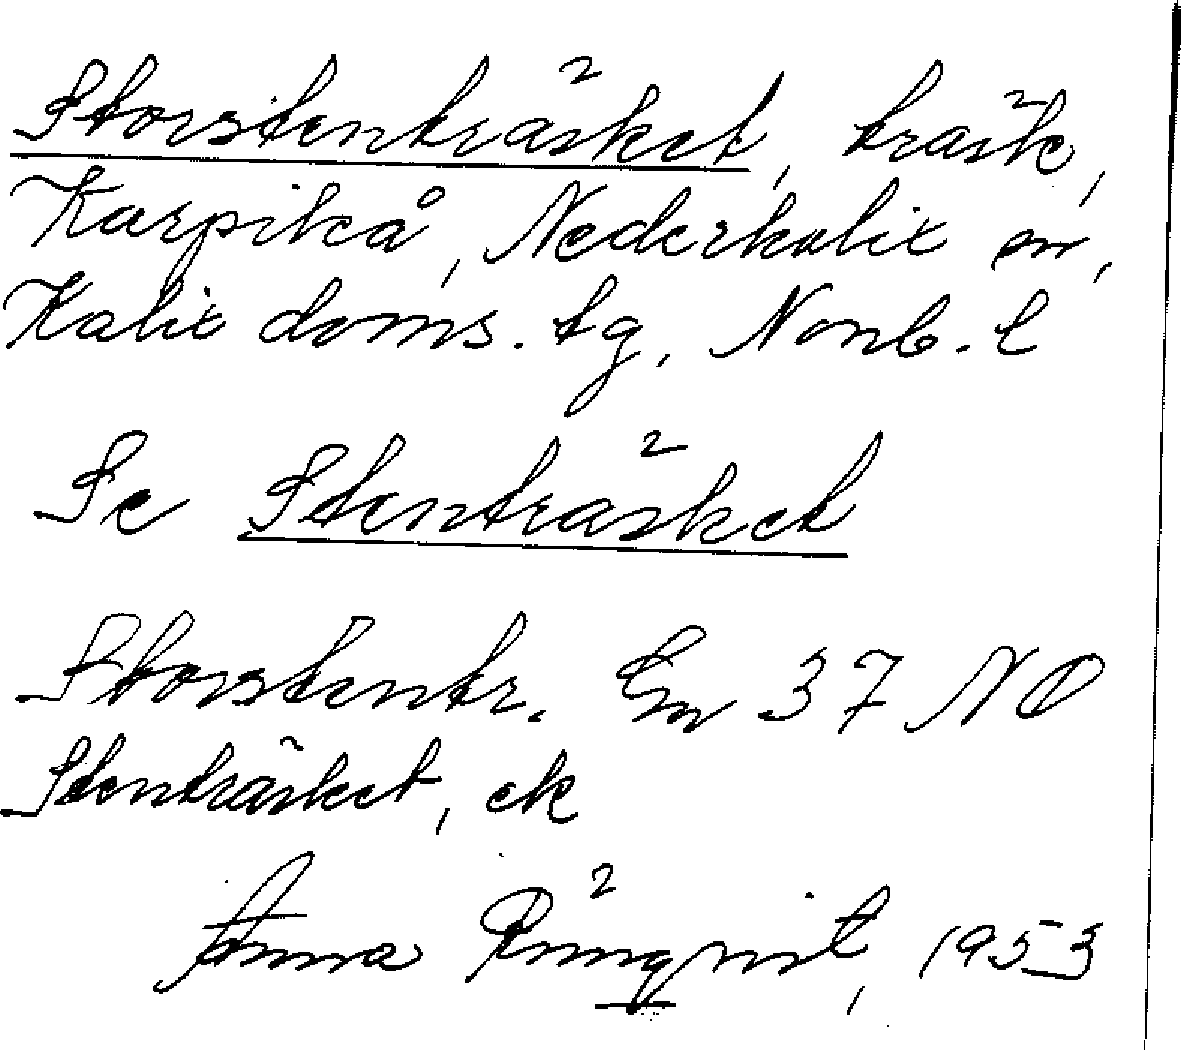 Storstenträsket, träsk,
Karpikå, Nederkalix sn,
Kalix doms. tg, Norrb. l
Se Stenträsket
Storstentr. En 37 NO
Stenträsket, ek
Anna Rönnqvist, 1953